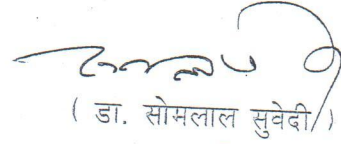 ( डा. सोमलाल सुवेदी )